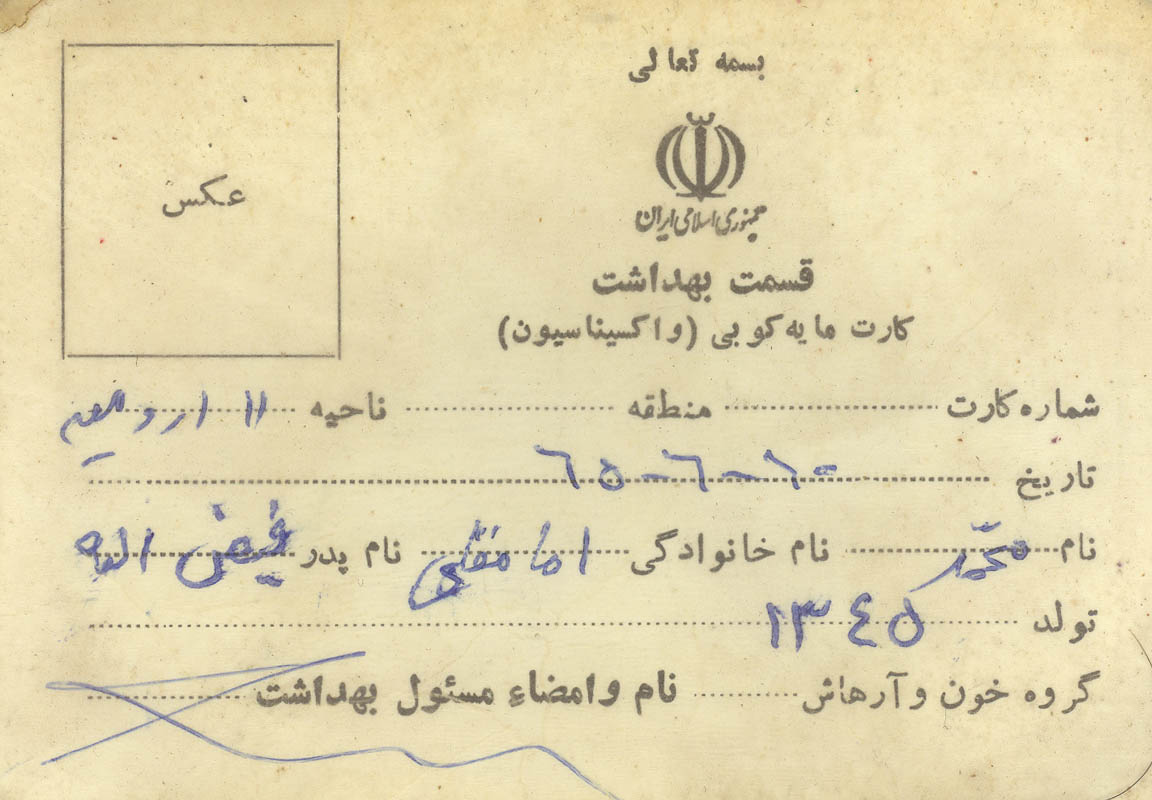 بسمه تعالی
جمهوری اسلامی ایران
قسمت بهداشت
کارت مایه کوبی (واکسیناسیون)
عکس
شماره کارت منطقه ناحیه ۱۱ ارومیه
تاریخ ٦٥-٦-١٥
نام محمّد نام خانوادگی امامقلی نام پدر فیض الله
تولد ۱۳٤۵
گروه خون و آرهاش نام و امضاء مسئول بهداشت